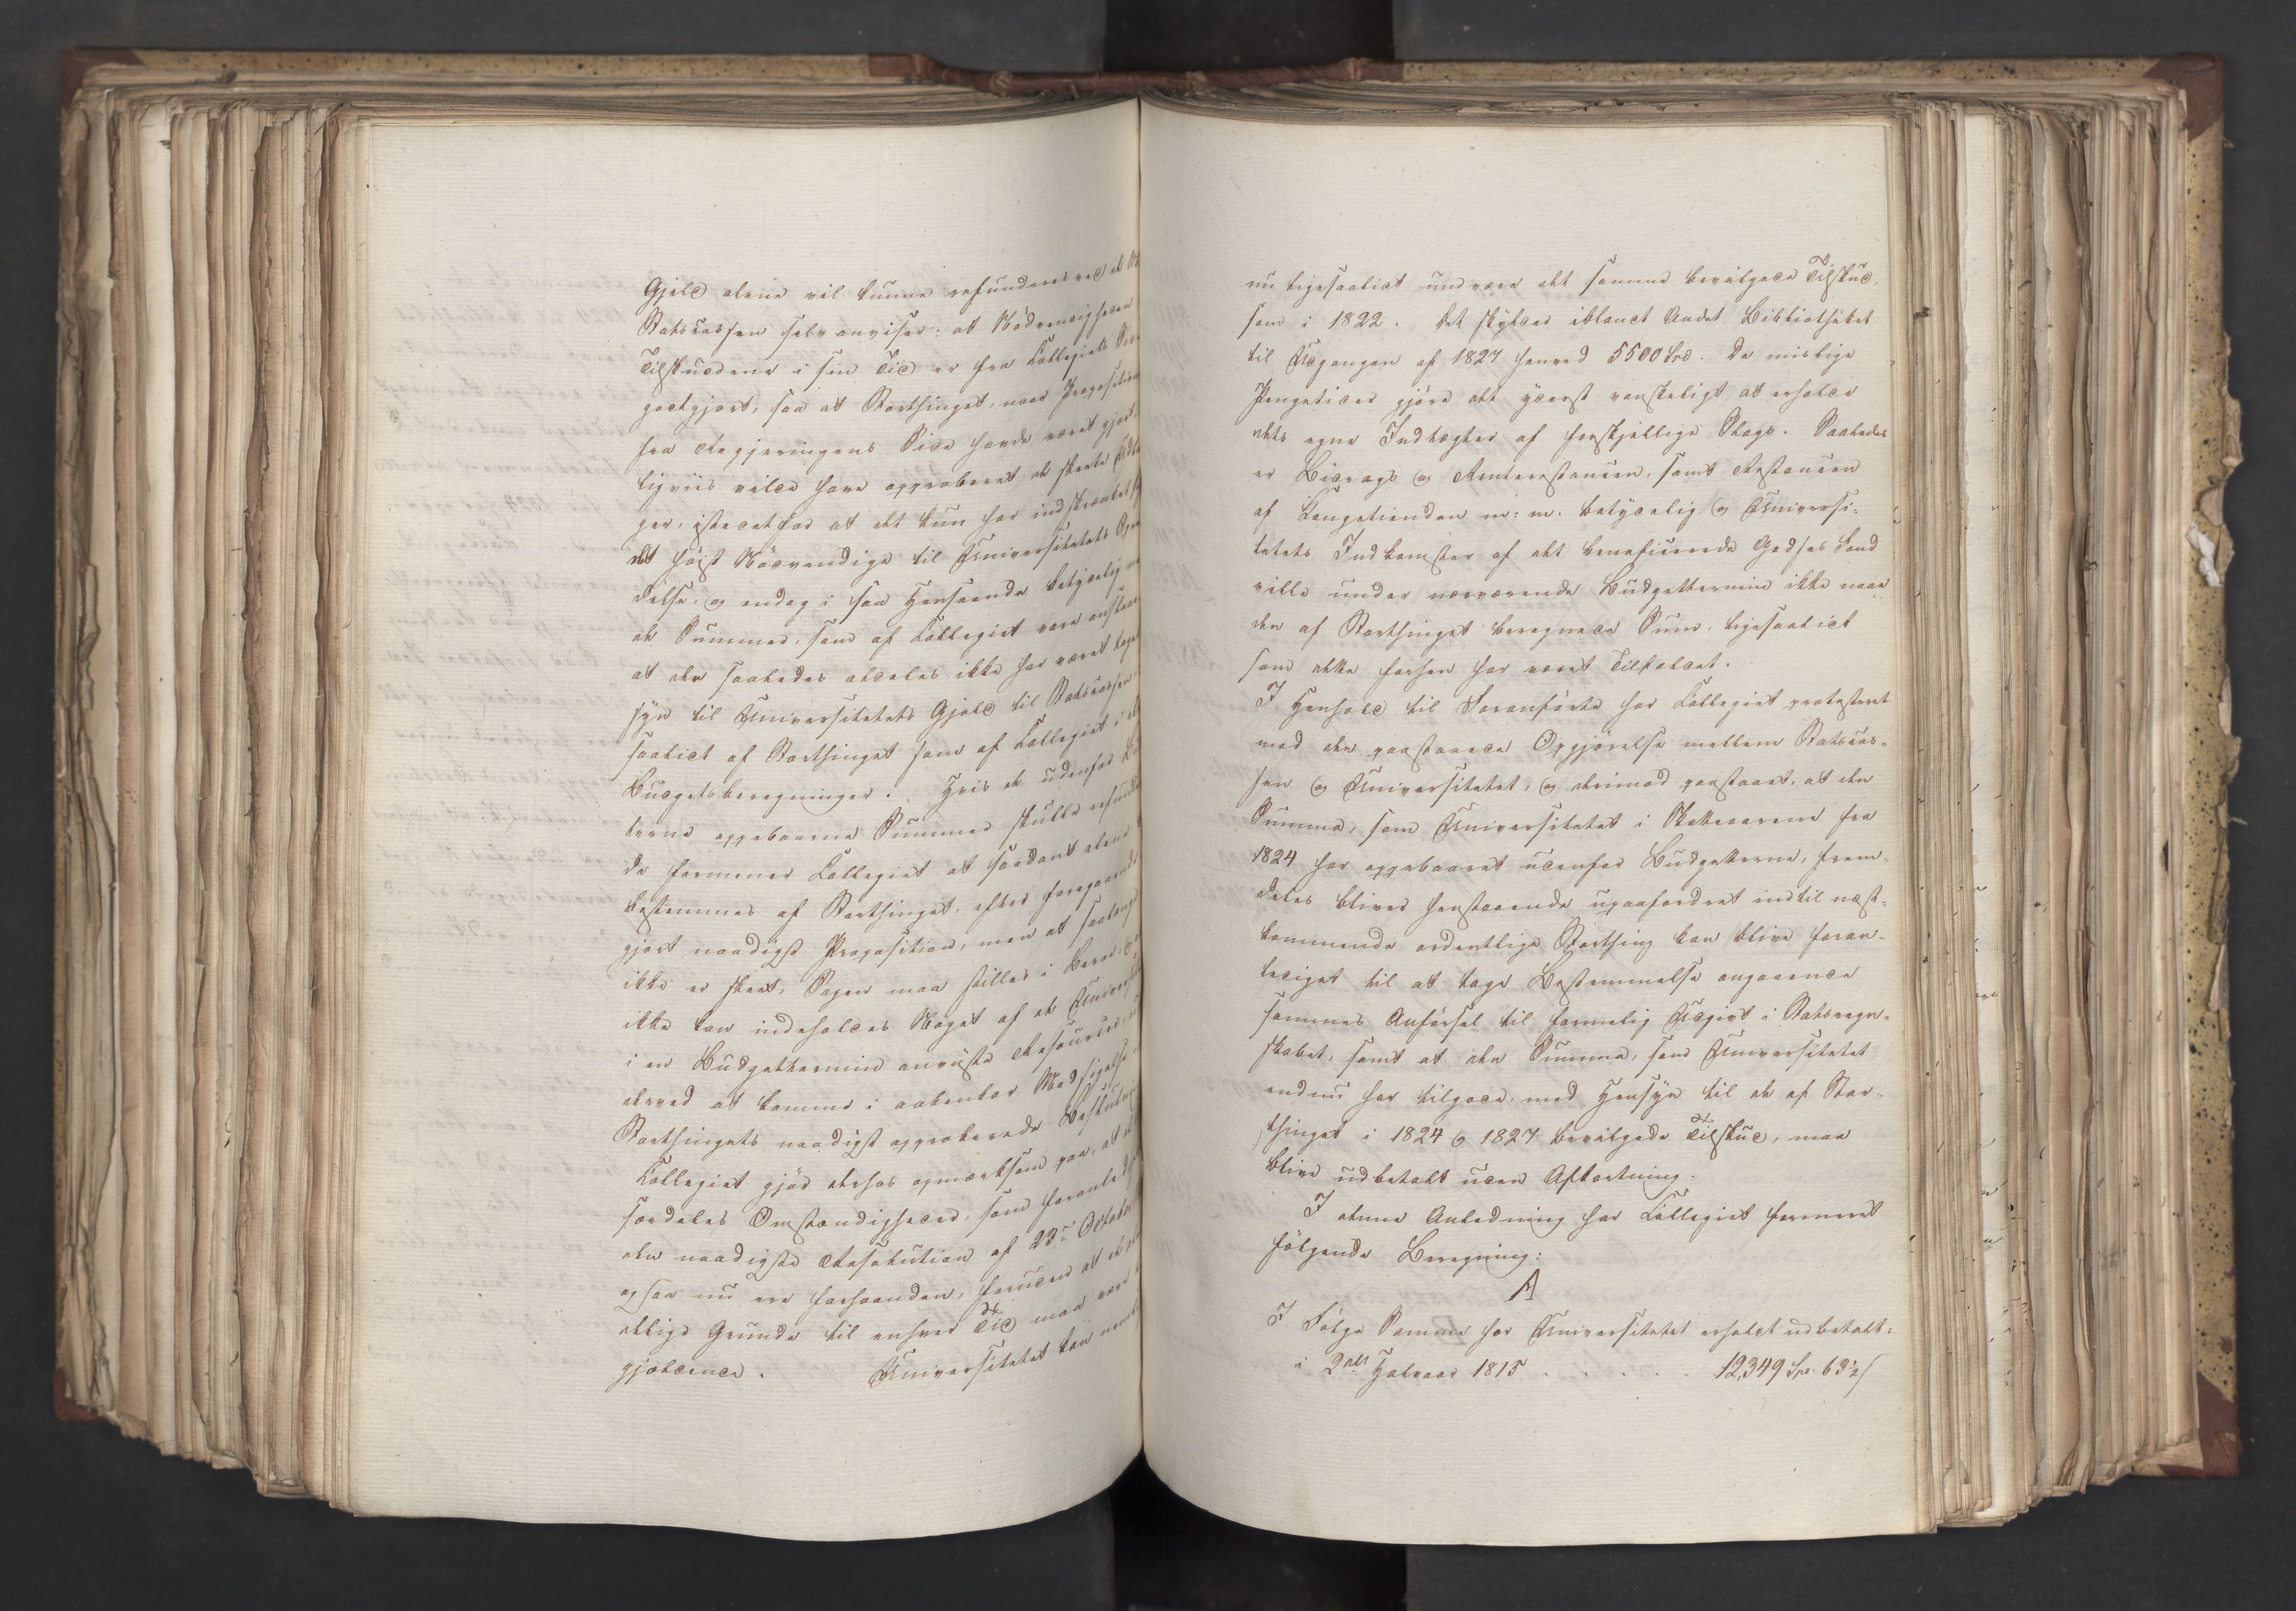 Gjeld alene vil kunne refunderes ved de M
Statscassen selv anviser: at Nödvendigheden
Tilskudene i sin Tid er fra Collegiets Side
godtgjort, saa at Storthinget, naar Proposition
fra Regjeringens Side havde været gjort,
ligviis vilde have approberet de skeete Udta
ger, istedetfor at det kun har indskrænket sig
det höist Nödvendige til Universitetets Opret
delse, og endog i saa Henseende betydelig
de Summer, som af Collegiet vare anslaae
at der saaledes aldeles ikke har været taget
syn til Universitetets Gjeld til Statscassen
saalidt af Storthinget som af Collegiet i de
Budgetsberegninger. Hvis de udenfor Bud
terne oppebaarne Summer skulle refunde
da formener Collegiet at saadant alene
bestemmes af Storthinget, efter foregaaende
gjort naadigst Proposition, men at saalænge
ikke er skeet, Sagen maa stilles i Bero, og
ikke kan indeholdes Noget af de Universit
i en Budgettermin anviiste Resourcer,
derved at komme i aabenbar Modsigelse
Storthingets naadigst approberede Beslutni
Collegiet gjör derhos opmærksom paa, at de
særdeles Omstændigheder, som foranledig
den naadigste Resolution af 23de October
ogsaa nu ere forhaanden, foruden at de
ellige Grunde til enhver Tid maa være
gjældende. Universitetet kan neml
nu ligesaalidt undvære det samme bevilgede Tilskud,
som i 1822. Det skylder iblandt Andet Bibliotheket
til Udgangen af 1827 henved 5500 Spd. De mislige
Pengetider gjöre det yderst vanskeligt at erholde
dets egne Indtægter af forskjellige Slags. Saaledes
er Bidrags og Renterestancen, samt Restancen
af Kongetienden m: m. betydelig og Universi-
tetets Indkomster af det beneficerede Godses Fond
ville under nærværende Budgettermin ikke naae
den af Storthinget beregnede Sum, ligesaalidt
som dette forhen har været Tilfældet.
I Henhold til Foranförte har Collegiet protesteret
mod den paastaaede Opgjörelse mellem Statscas-
sen og Universitetet, og derimod paastaaet, at den
Summa, som Universitetet i Skatteaarene fra
1824 har oppebaaret udenfor Budgetterne, frem-
deles bliver henstaaende upaafordret indtil næst-
kommende ordentlige Storthing kan blive foran-
lediget til at tage Bestemmelse angaaende
sammes Anförsel til formelig Udgivt i Statsregn-
skabet, samt at den Summa, som Universitetet
endnu har tilgode, med Hensyn til de af Stor-
thinget i 1824 og 1827 bevilgede Tilskud, maa
blive udbetalt uden Afkortning.
I denne Anledning har Collegiet formeret
fölgende Beregning:
A
I Fölge Samme har Universitetet erholdt udbetalt:
i 2det Halvaar 1815 . . . . . 12,349 Spd. 63½ s